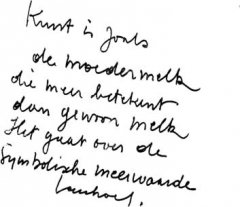 Kunst is zoals
de moedermelk
die meer betekent
dan gewoon melk
Het gaat over de
symbolische meerwaarde